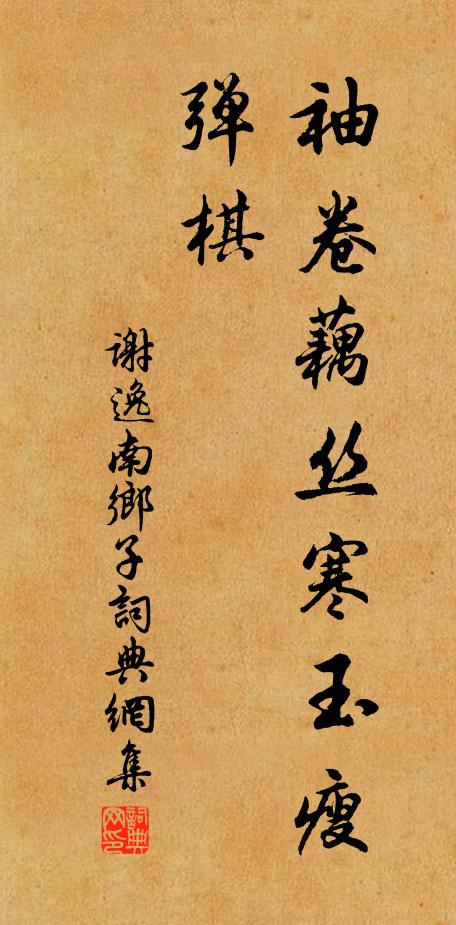 袖卷藕丝寒玉瘦
弹棋
謝逸南鄉子詞典網集
詞典网印